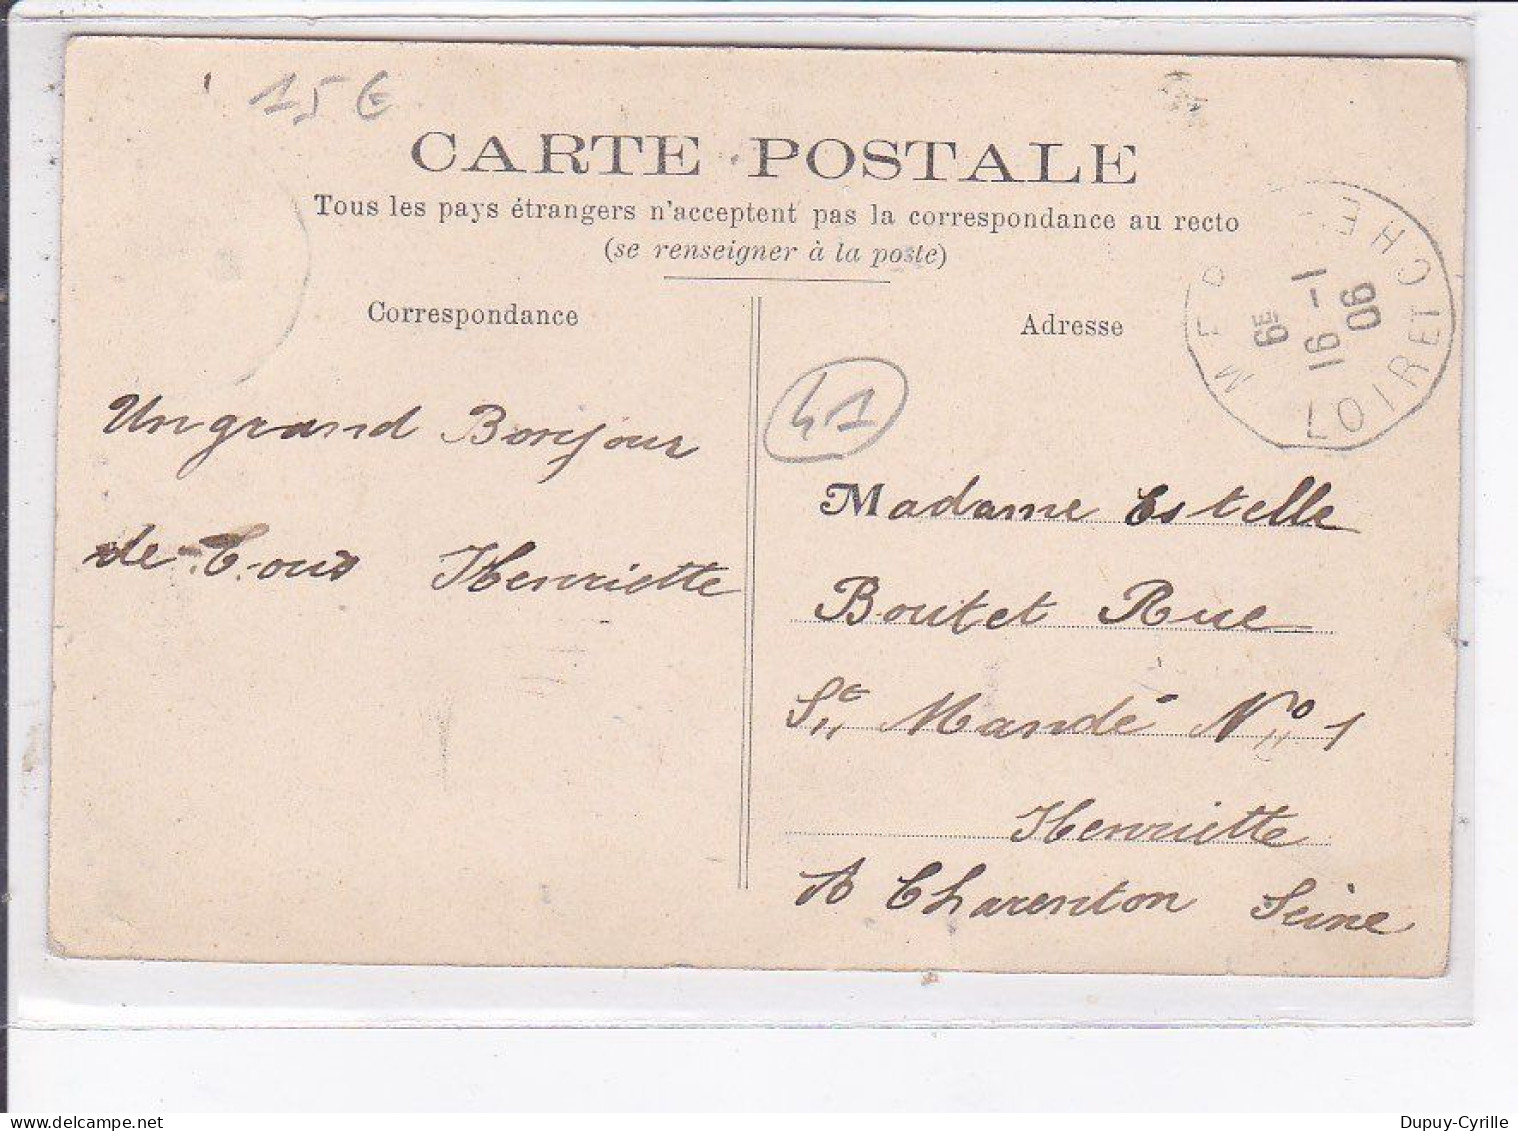 15 €
CARTE POSTALE
Tous les pays étrangers n'acceptent pas la correspondance au recto
(se renseigner à la poste)
Correspondance
Un grand Bonjour
de Tous Henriette
Adresse
41
Madame Estelle
Boutet Rue
St Mandé No 1
Henriette
A Charenton Seine
6E
16 -1
06
LOIR ET CHER
Dupuy-Cyrille